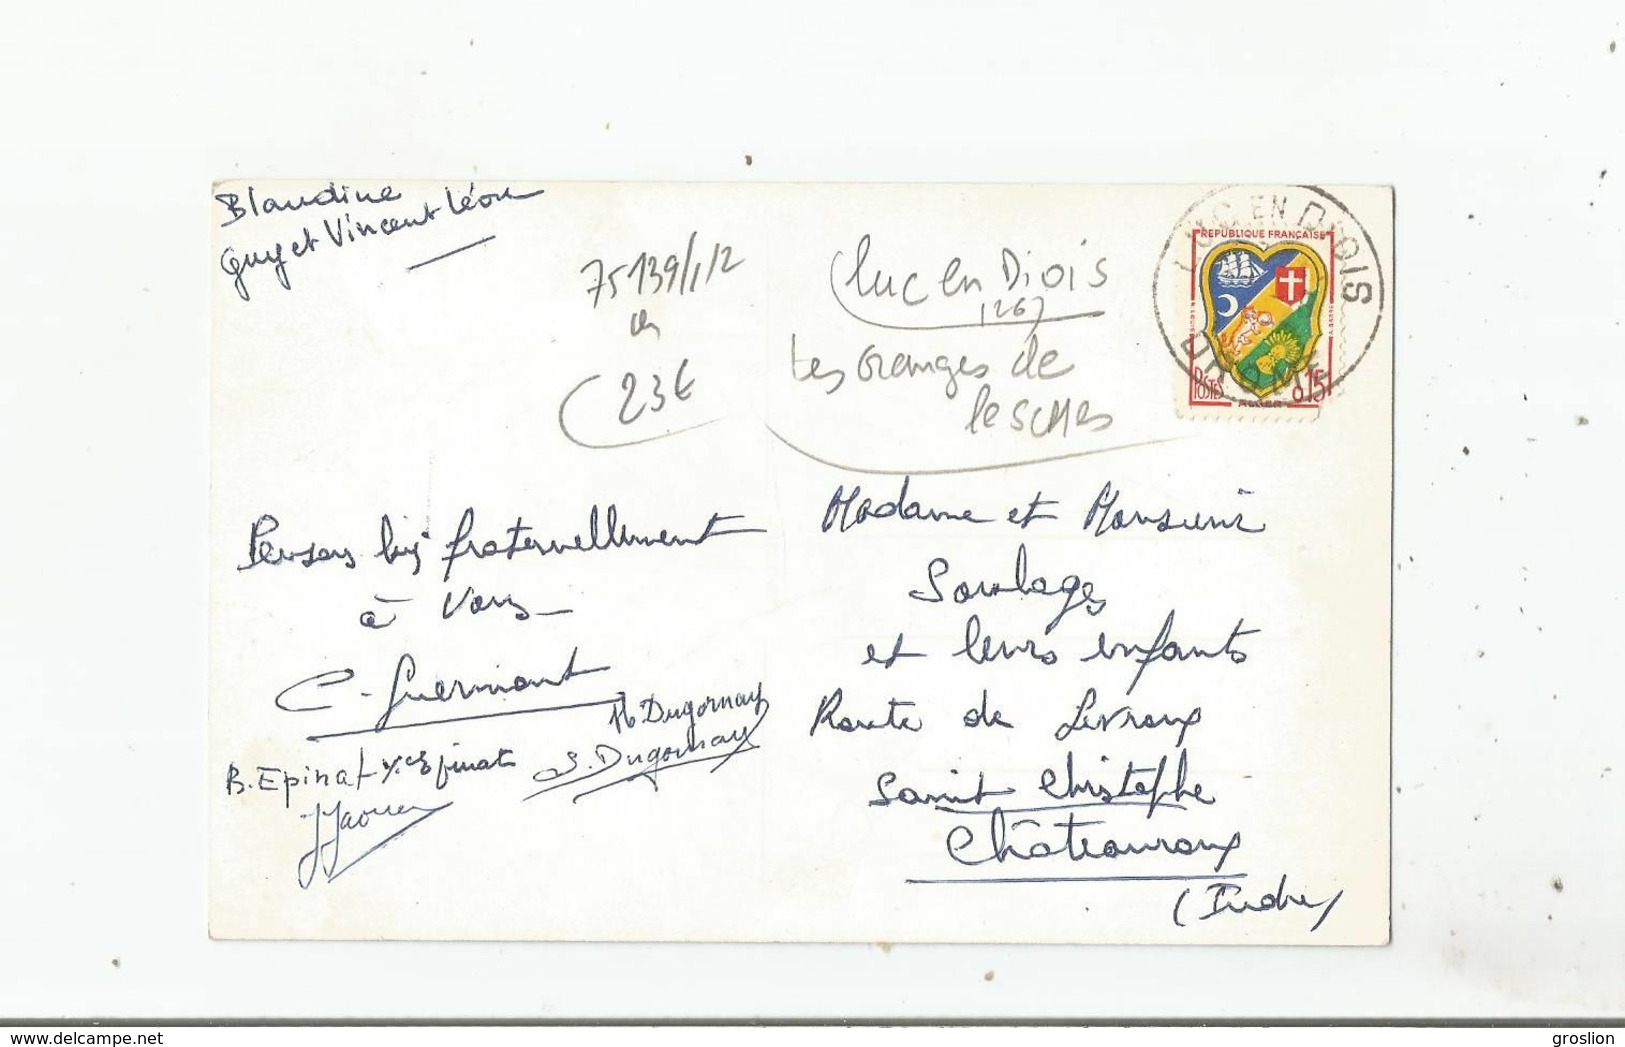 Blandine
Guy et Vincent Léon
75139/1/2
23€
luc en Diois
(26)
les Granges de
lesches
LUC EN DIOIS
DROME
REPUBLIQUE FRANÇAISE
POSTES
ALGER
0,15
Pensons bien fraternellement
à vous
C. Guermont
B. Epinat Y. Epinat
M Dugornay
S. Dugornay
Madame et Monsieur
Soulages
et leurs enfants
Route de Levroux
Saint Christophe
Châteauroux
(Indre)
groslion